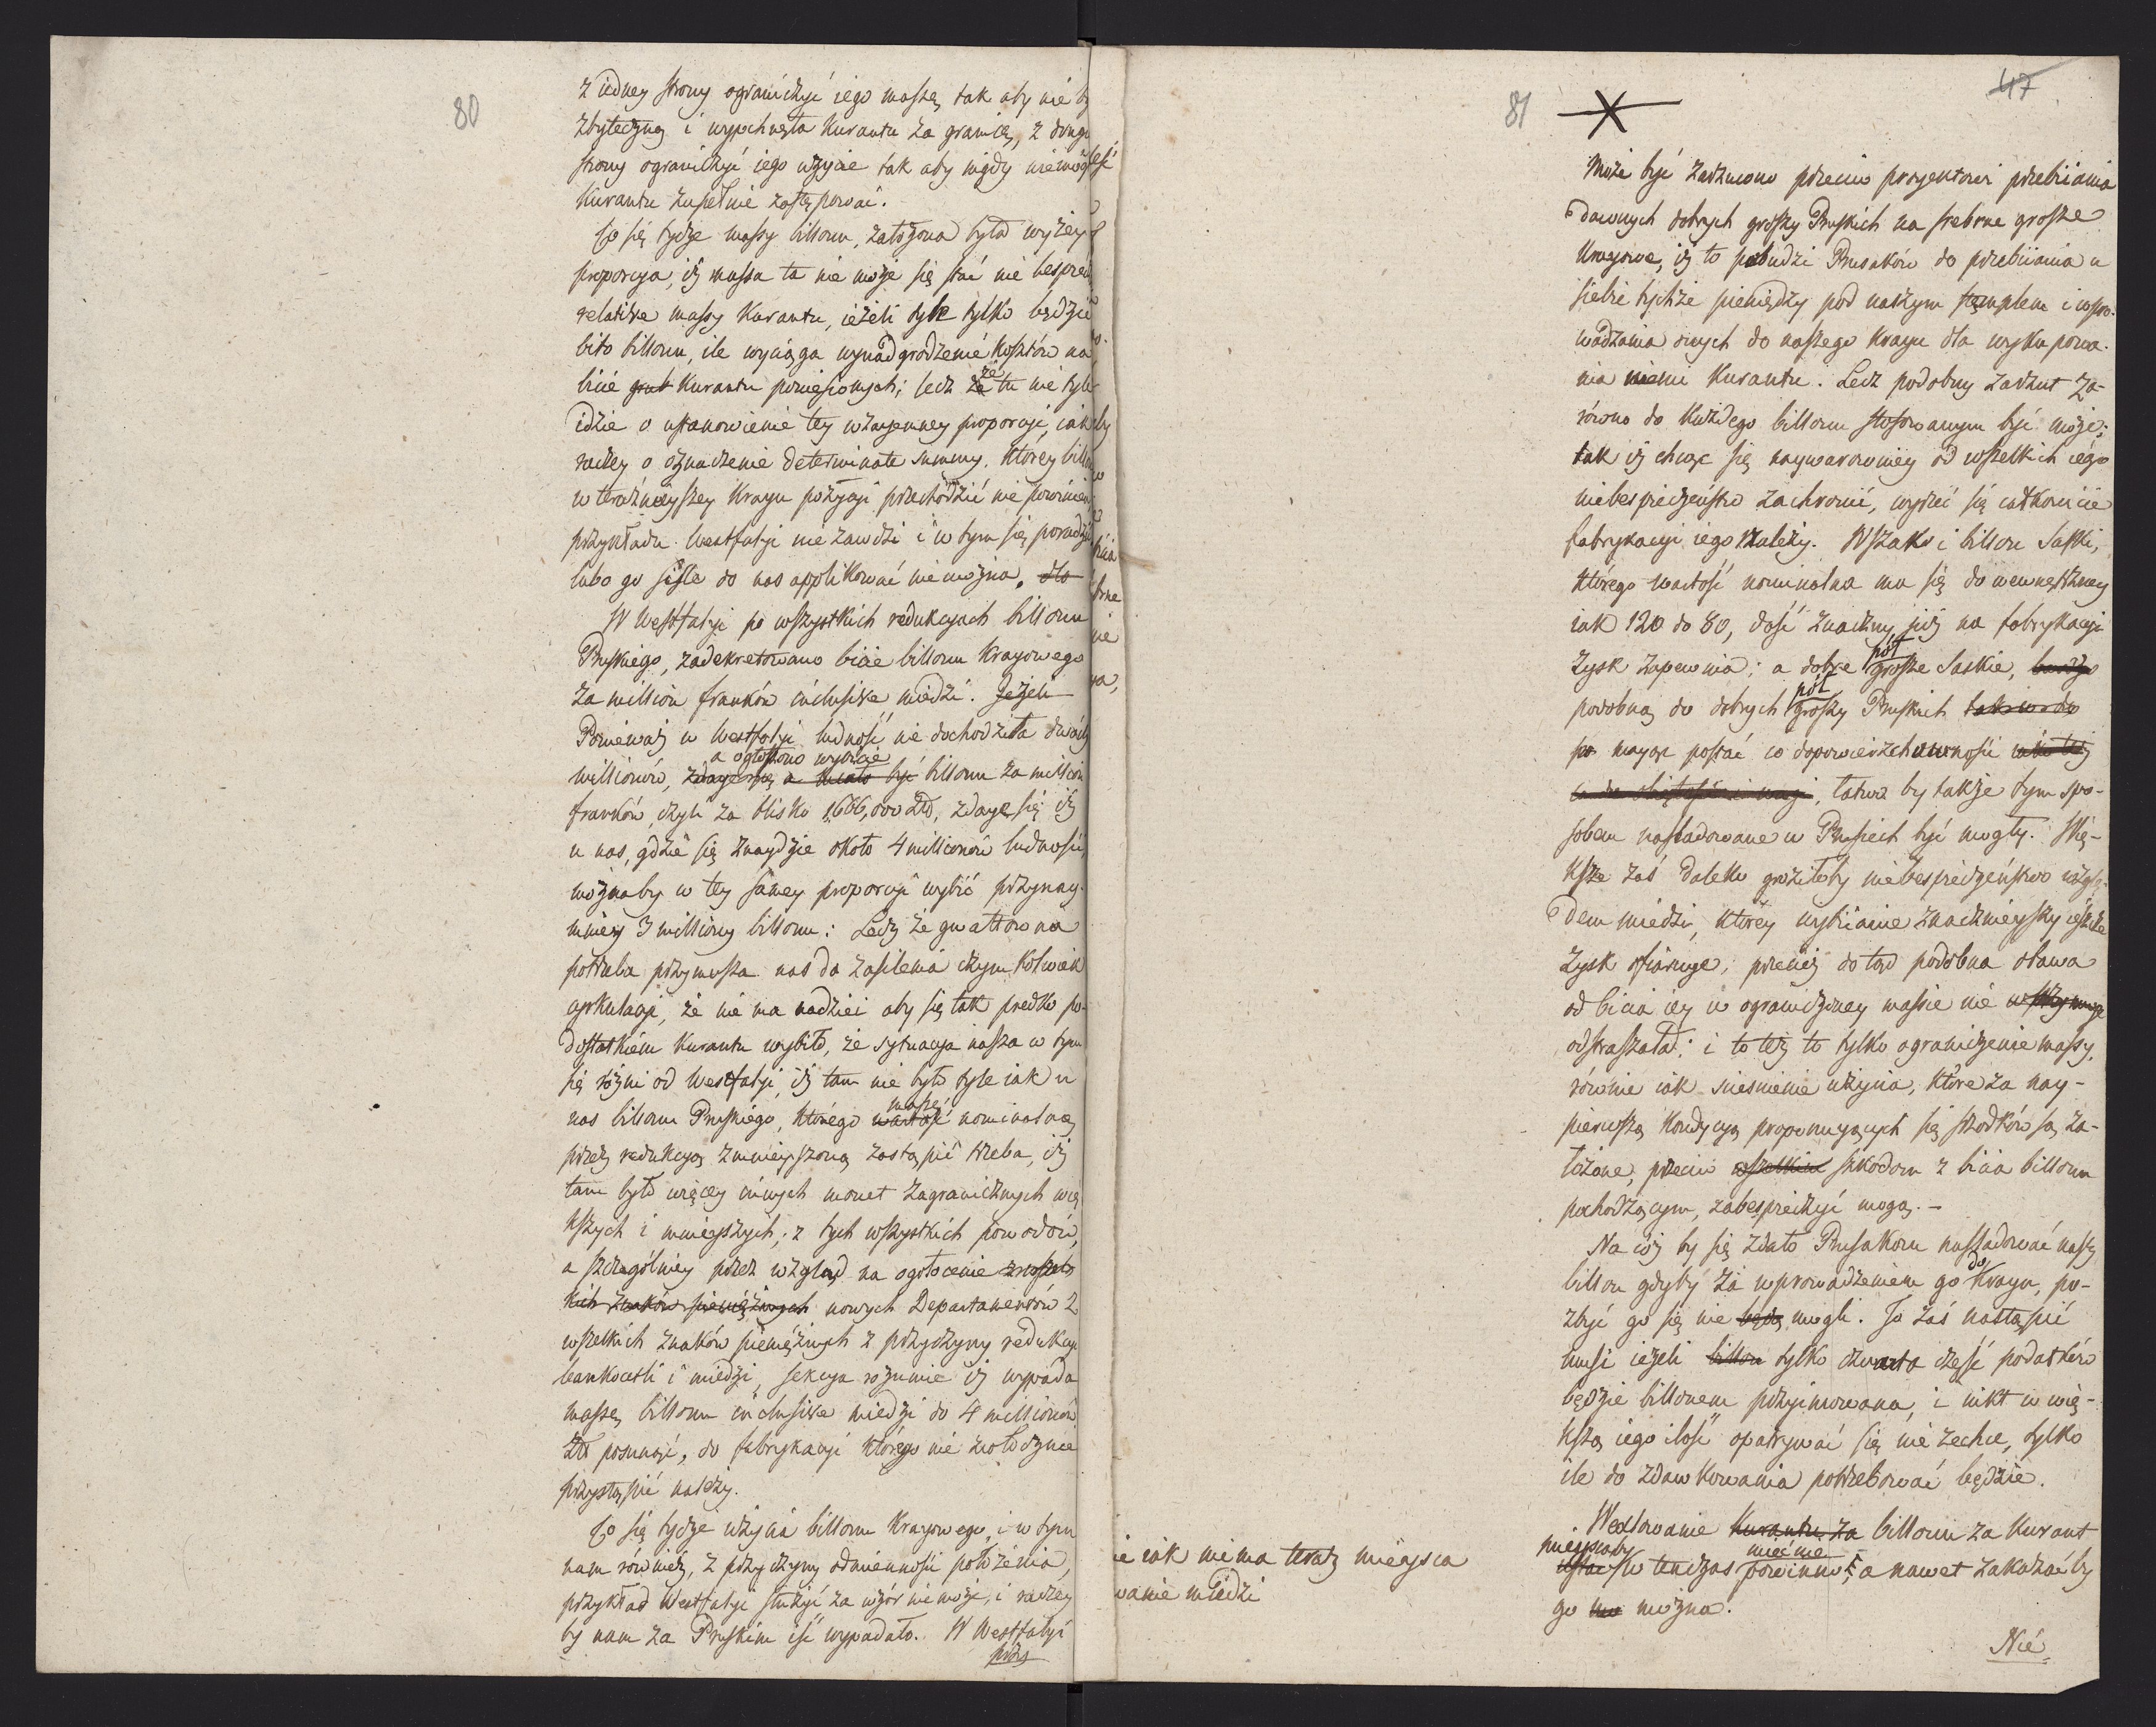 80
z iedney strony ograniczyć iego massę tak aby nie b
zbyteczną i wypchnęła Kurantu za granicę, z drugi
strony ograniczyć iego użycie tak aby nigdy niemógł
Kurantu zupełnie zastępować.
Co się tycze massy billonu, założona była wyżey
proporcya, iż massa ta nie może się stać nie bespiecz
relative massy Kurantu, ieżeli tyle tylko będzie
bito billonu, ile wyciąga wynadgrodzenie kosztów na
bicie grub Kurantu poniesionych; lecz że tu nie tyle
idzie o ustanowienie tey wzaiemney proporcyi, iak
raczey o oznaczenie determinate summy, którey billon
w teraźnieyszey Kraiu pozycyi przechodzić nie powinien
przykładu Westfalyi nie zawodzi i w tym się poradzić
lubo go ściśle do nas applikować nie można. dla
W Westfalyi po wszystkich redukcyach billonu
Pruskiego, zadekretowano bicie billonu Kraiowego
za million franków inclusive miedzi. Jeżeli
Ponieważ w Westfalyi ludność nie dochodziła dwóch
a ogłoszono wybicie
millionów, zdaye się a miało być billonu za million
franków czyli za blisko 1,666,000 Złł, zdaye się iż
u nas, gdzie się znayduie około 4 millionów ludności,
możnaby w tey samey proporcyi wybić przynay-
mniey 3 milliony billonu: Lecz że gwałtowna
potrzeba przymusza nas do zasilenia czymkolwiek
cyrkulacyi, że nie ma nadziei aby się tak prędko po-
dostatkiem Kurantu wybiło, że sytuacya nasza w tym
się różni od Westfalyi, iż tam nie było tyle iak u
massę
nas billonu Pruskiego, którego wartość nominalną
przez redukcyą zmnieyszoną zastąpić trzeba, iż
tam było więcey innych monet zagranicznych wię
kszych i mnieyszych; z tych wszystkich powodów,
a szczególniey przez wzgląd na ogołocenie z wszel
kich znaków pieniężnych nowych Departamentów z
wszelkich znaków pieniężnych z przyczyny redukcyi
bankocetli i miedzi, sekcya rozumie iż wypada
massę billonu inclusive miedzi do 4 millionów
Złł posunąć, do fabrykacyi którego nie zwłocznie
przystąpić należy.
Co się tycze użycia billonu Kraiowego, i w tym
nam również, z przyczyny odmienności położenia,
przykład Westfalyi służyć za wzór nie może, i raczey
by nam za Pruskim iść wypadało. W Westfalyi
przy
ie iak nie ma teraz mieysca
wanie miedzi
81
47
Może być zarzucono przeciw proyektowi przebiiania
dawnych dobrych groszy Pruskich na srebrne grosze
Kraiowe, iż to pobudzi Prusaków do przebiiania u
siebie tychże pieniędzy pod naszym stęmplem i wpro-
wadzania onych do naszego Kraiu dla wykupowa-
nia niemi Kurantu. Lecz podobny zarzut za-
równo do każdego billonu stosowanym być może;
tak iż chcąc się naywarowniey od wszelkich iego
niebespieczeństw zachronić, wyrzec się całkowicie
fabrykacyi iego należy. Wszakże i billon Saski,
którego wartość nominalna ma się do wewnętrzney
iak 120 do 80, dość znaczny iuż na fabrykacyi
pół
zysk zapewnia; a dobre grosze Saskie, bardzo
pół
podobną do dobrych groszy Pruskich
maiąc postać co do powierzchowności
łatwo by także tym spo-
sobem naśladowane w Prusiech być mogły. Wię-
ksze zaś daleko groziłoby niebespieczeństwo wzglę-
dem miedzi, którey wybiianie znacznieyszy ieszcze
zysk ofiaruje; przecież dotąd podobna obawa
od bicia iey w ograniczoney massie nie wstrzymuie
odstraszała: i to też to tylko ograniczenie massy,
równie iak ścieśnienie użycia, które za nay-
pierwszą kondycyą proponuiących się środków są za-
łożone, przeciw wszelkim szkodom z bicia billonu
pochodzącym, zabespieczyć mogą.-
Na cóż by się zdało Prusakom naśladować nasz
do
billon gdyby za wprowadzeniem go Kraiu, po-
zbyć go się nie będą mogli. To zaś nastąpić
musi ieżeli billon tylko czwarta część podatków
będzie billonem przyimowana, i nikt w wię-
kszą iego ilość opatrywać się nie zechce, tylko
ile do zdawkowania potrzebować będzie.
Wexlowanie Kurantu za billonu za Kurant
mieyscaby mieć nie
ustać w tenczas powinno, a nawet zakazaćby
go można.
Nie